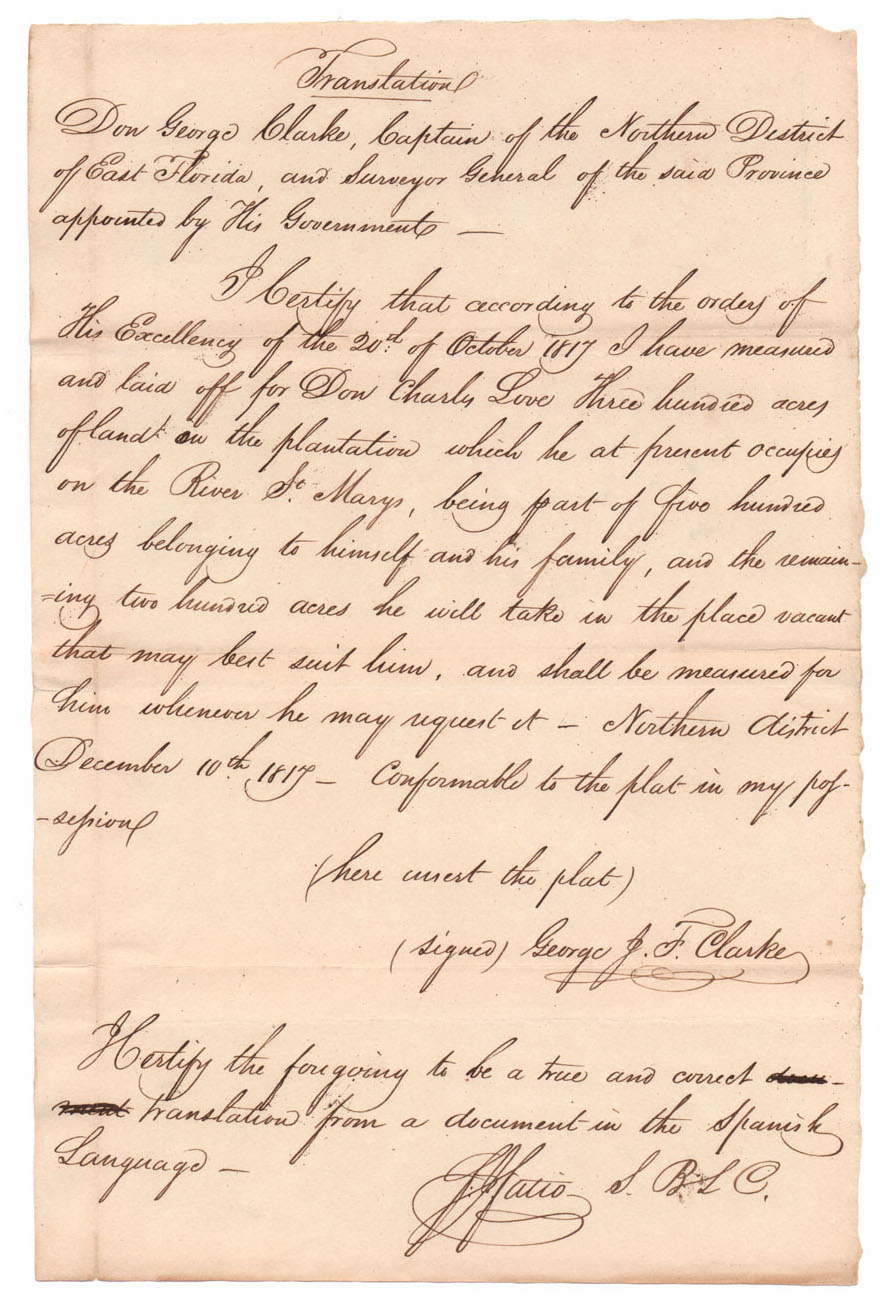 Translation
Don George Clarke, Captain of the Northern District
of East Florida, and Surveyor General of the said Province
appointed by His Government —
I Certify that according to the orders of
His Excellency of the 20th of October 1817 I have measured
and laid off for Don Charles Love Three hundred acres
of land on the plantation which he at present occupies
on the River St. Marys, being part of five hundred
acres belonging to himself and his family, and the remain-
=ing two hundred acres he will take in the place vacant
that may best suit him, and shall be measured for
him whenever he may request it — Northern district
December 10th 1817 — Conformable to the plat in my pos-
-session
(here insert the plat)
(signed) George J. F. Clarke
I Certify the foregoing to be a true and correct docu-
ment translation from a document in the Spanish
Language —
S. B. L C.